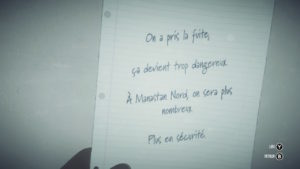 On a pris la fuite,
ça devient trop dangereux.
À Manastan Nord, on sera plus
nombreux.
Plus en sécurité.